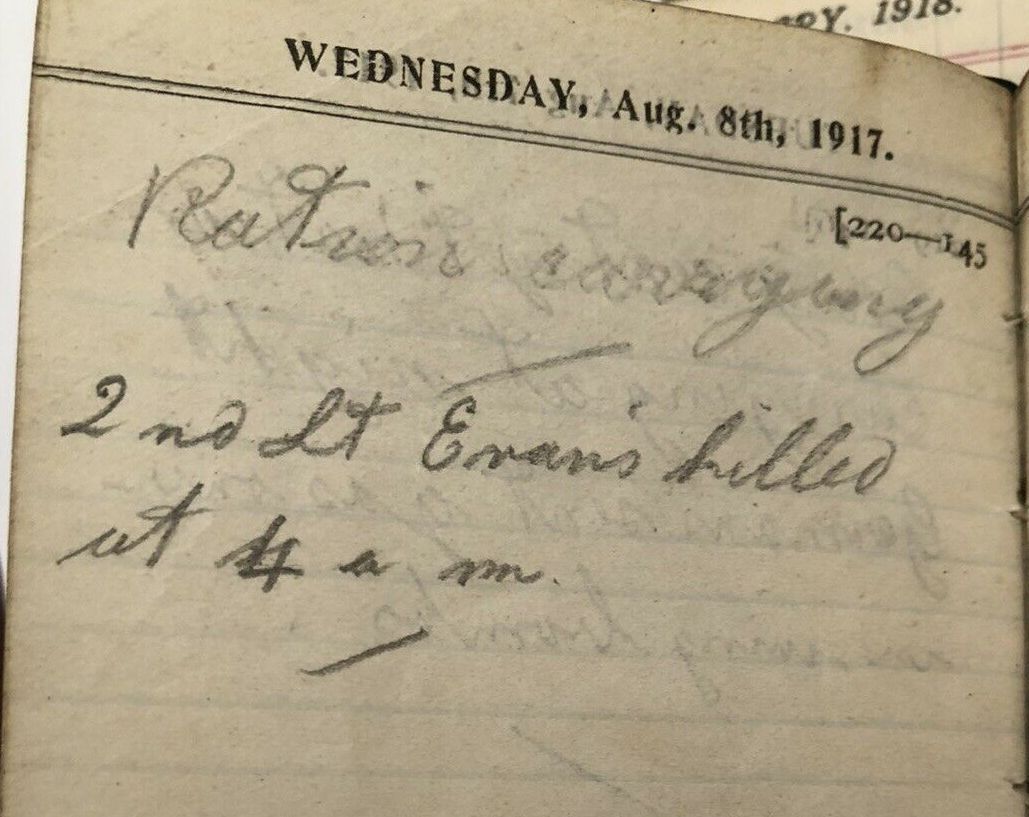 RY. 1918.
WEDNESDAY, Aug. 8th, 1917.
[220—145
Ration carrying
2nd Lt Evans killed
at 4 a m.